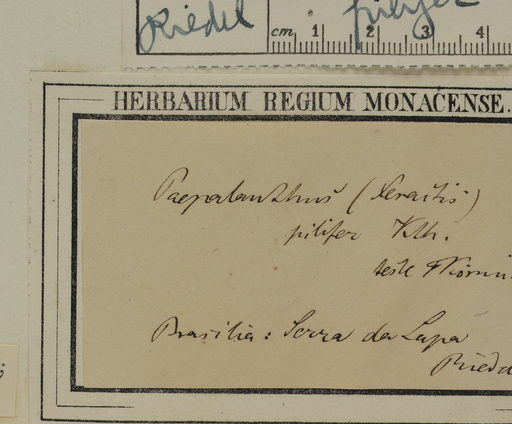 Riedel pilifer
cm 1 2 3 4
HERBARIUM REGIUM MONACENSE.
Paepalanthus (Xeractis)
pilifer Kth.
teste F Körnic
Brasilia: Serra da Lapa
Riede